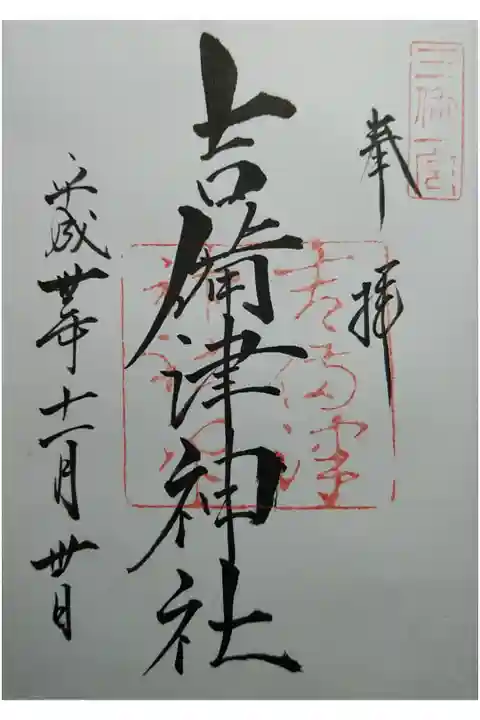 三備一宮
奉拝
吉備津神社
吉備津
平成卅年十一月卅日